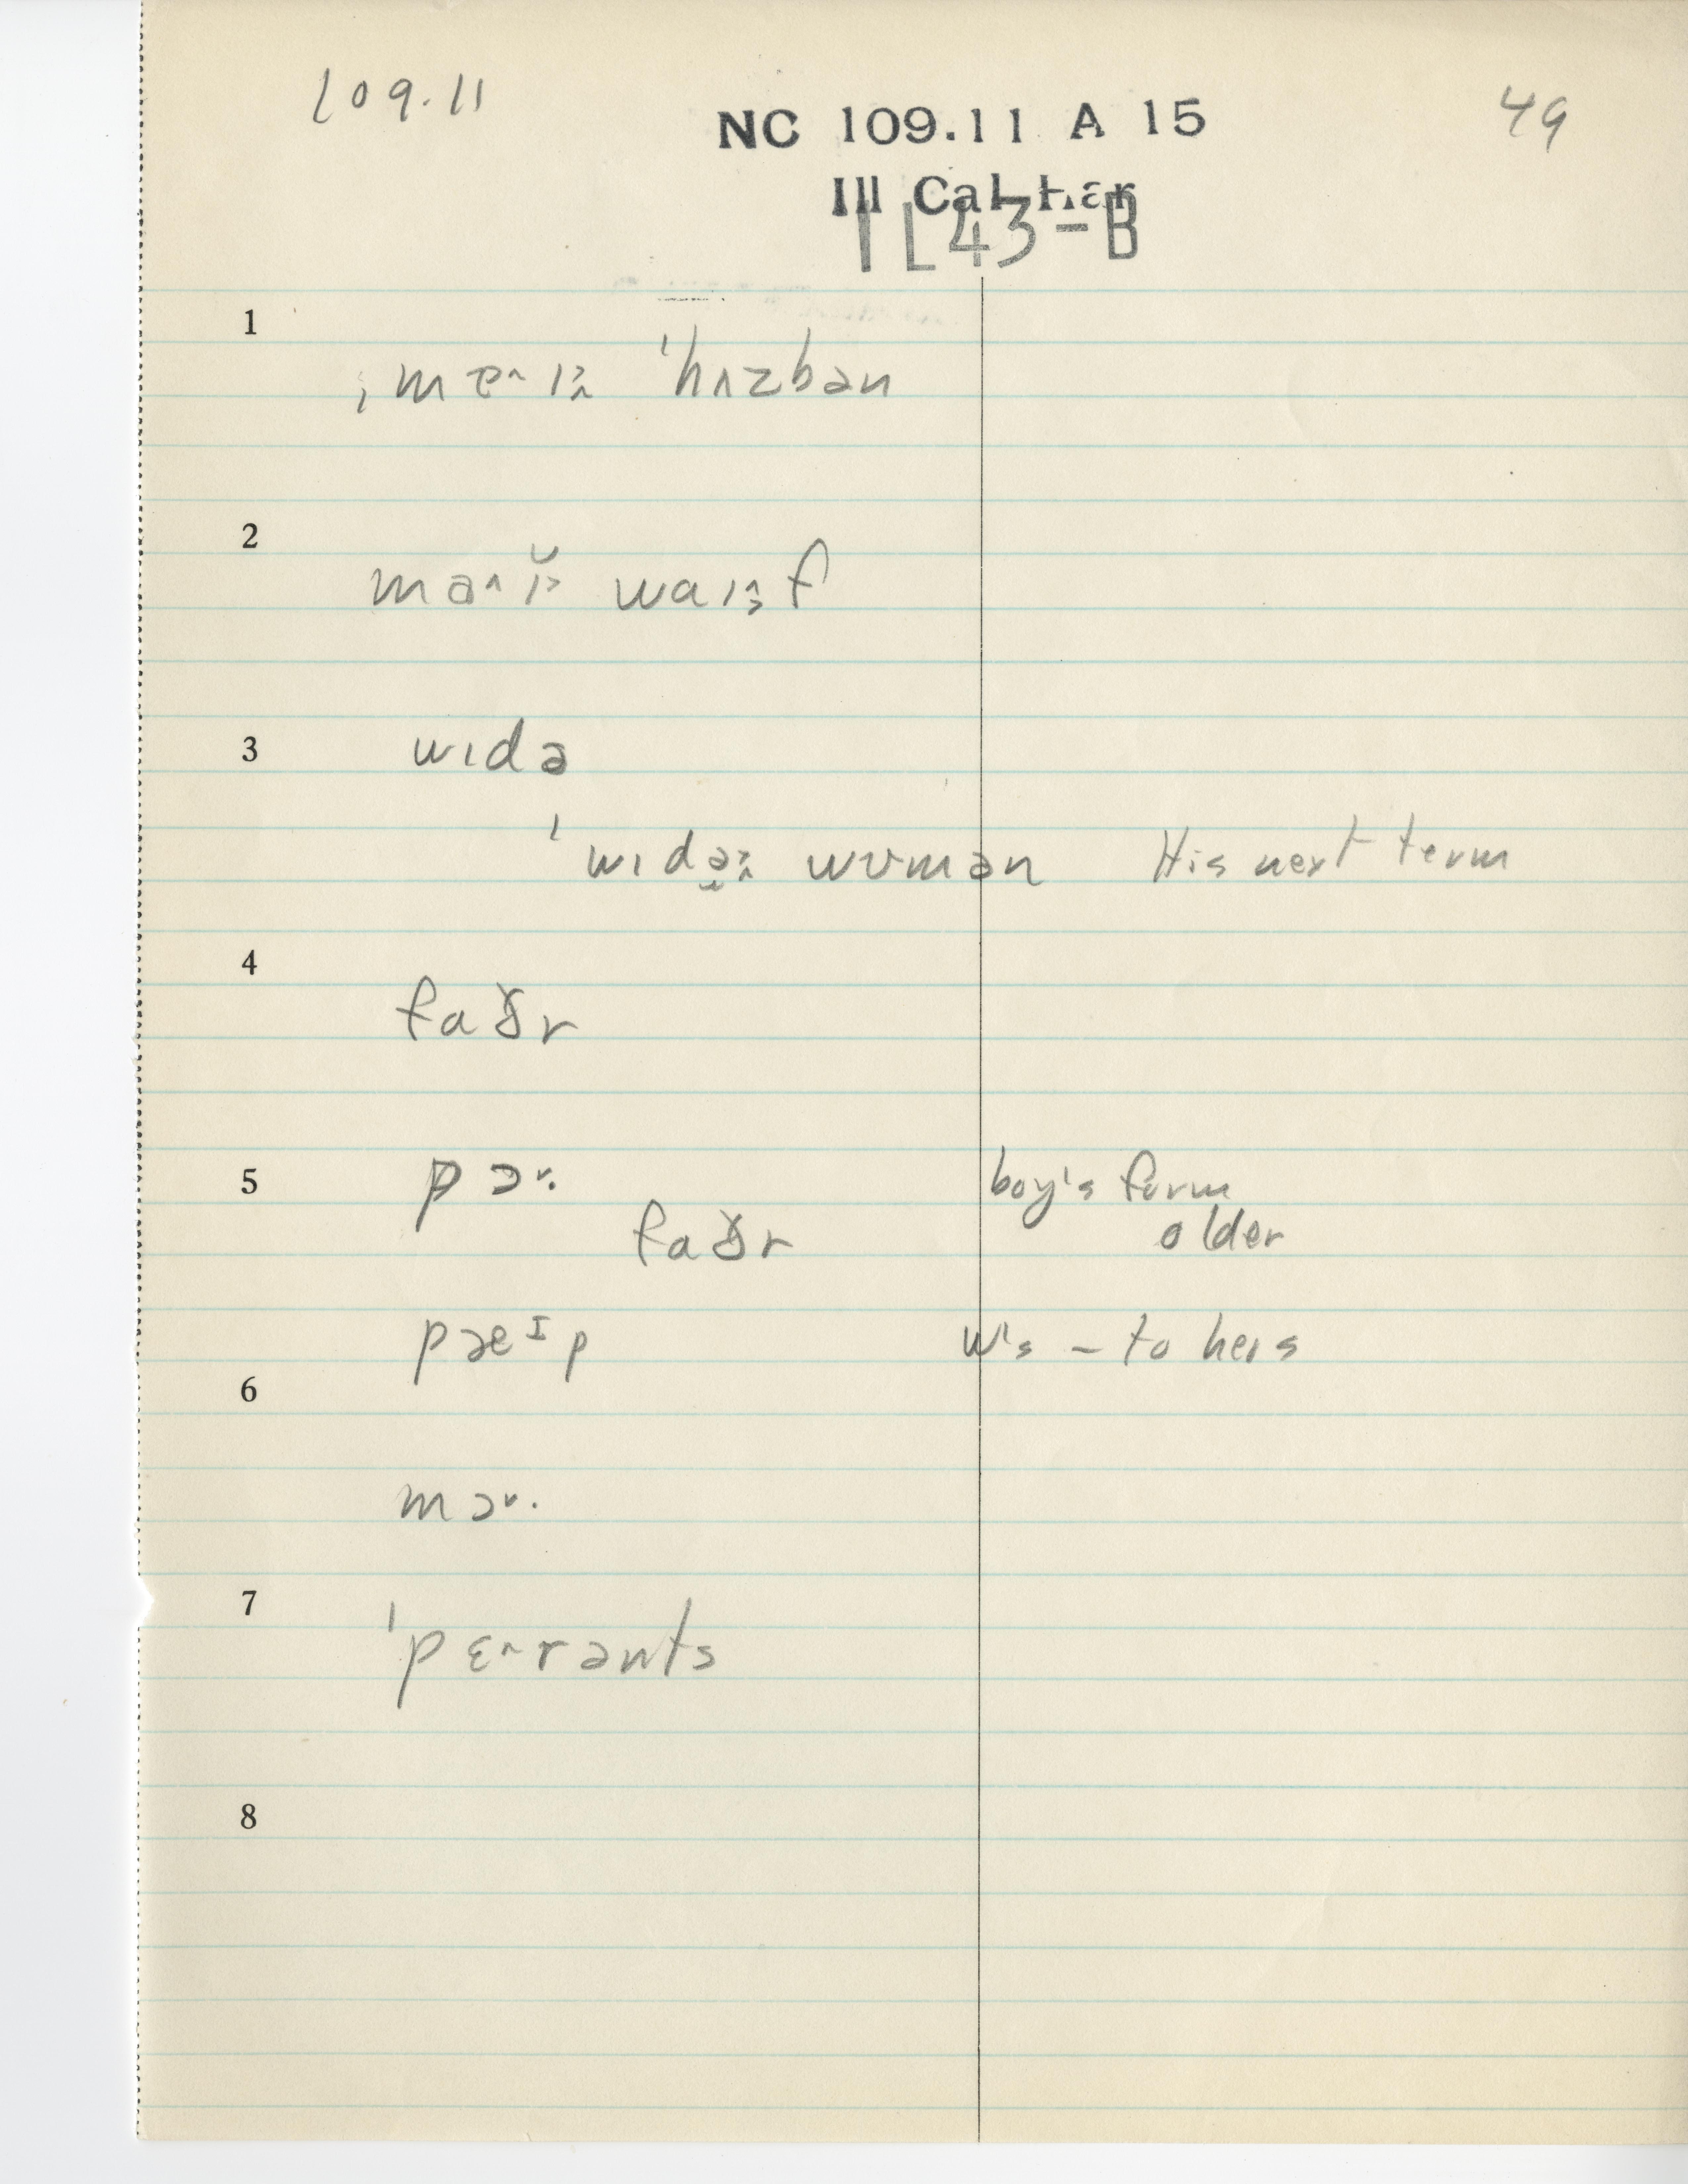 109.11
NC 109.11 A 15
49
Ill Cal Har
IL43-B
1
ˌmɐ˄ɪ˃˄ ˈhʌzbən
2
ma˄ɪ̆˃ waɪ˄˃f
3
wɪdə
ˈwɪdə˃˄ wʊmən His next term
4
faðr
5
pɔ˅· boy's form
faðr older
pæᴵp w's – to hers
6
mɔ˅·
7
ˈpɛ˄rənts
8